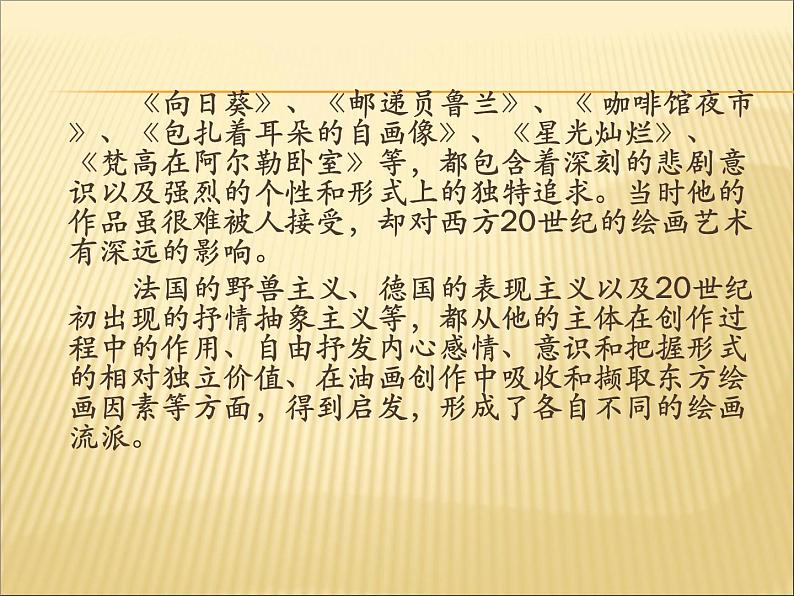 《向日葵》、《邮递员鲁兰》、《 咖啡馆夜市
》、《包扎着耳朵的自画像》、《星光灿烂》、
《梵高在阿尔勒卧室》等，都包含着深刻的悲剧意
识以及强烈的个性和形式上的独特追求。当时他的
作品虽很难被人接受，却对西方20世纪的绘画艺术
有深远的影响。
法国的野兽主义、德国的表现主义以及20世纪
初出现的抒情抽象主义等，都从他的主体在创作过
程中的作用、自由抒发内心感情、意识和把握形式
的相对独立价值、在油画创作中吸收和撷取东方绘
画因素等方面，得到启发，形成了各自不同的绘画
流派。